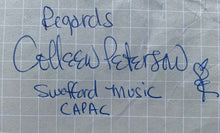 Regards
Colleen Peterson
Swafford Music
CAPAC